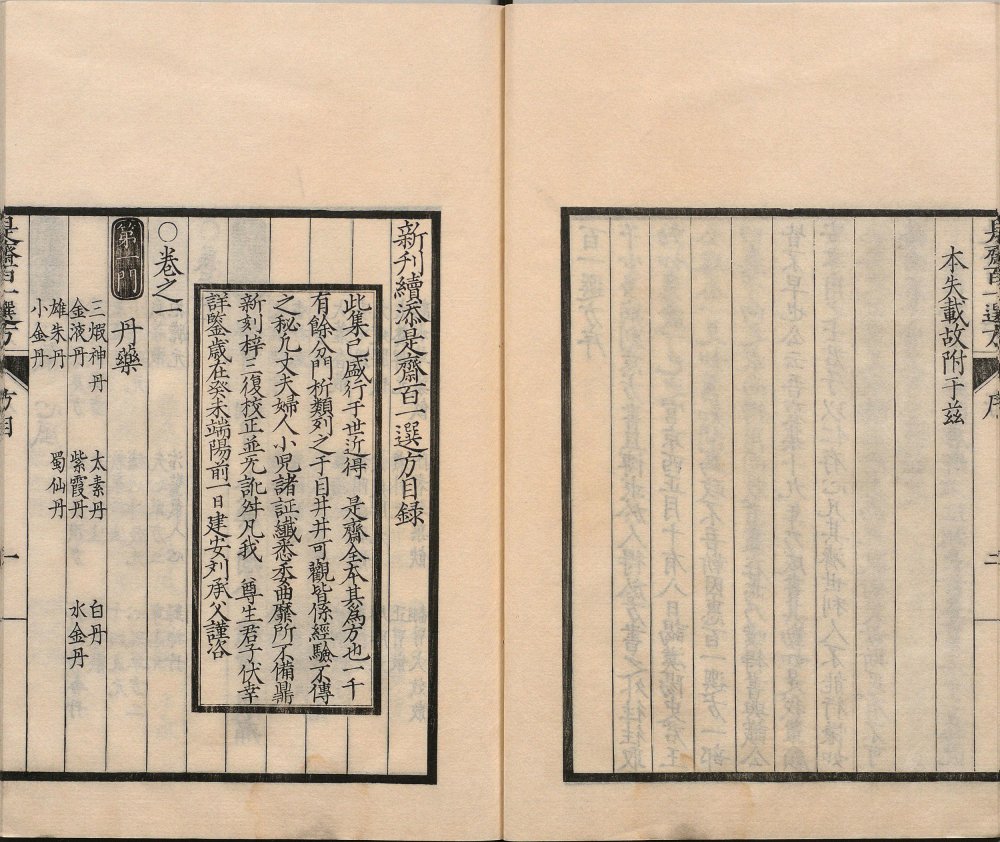 本失載故附于茲
新刋續添是齋百一選方目録
此集已盛行于世近得 是齋全本其爲方也一千
有餘分門析類列之于目井井可觀皆係經驗不傳
之秘凡丈夫婦人小児諸証纎悉委曲靡所不備鼎
新刻梓三復校正並无訛舛凡我 尊生君子伏幸
詳鑒歳在癸未端陽前一日建安刘承父謹咨
○卷之一
第一門 丹藥
三煆神丹 太素丹 白丹
金液丹 紫霞丹 水金丹
雄朱丹 蜀仙丹
小金丹